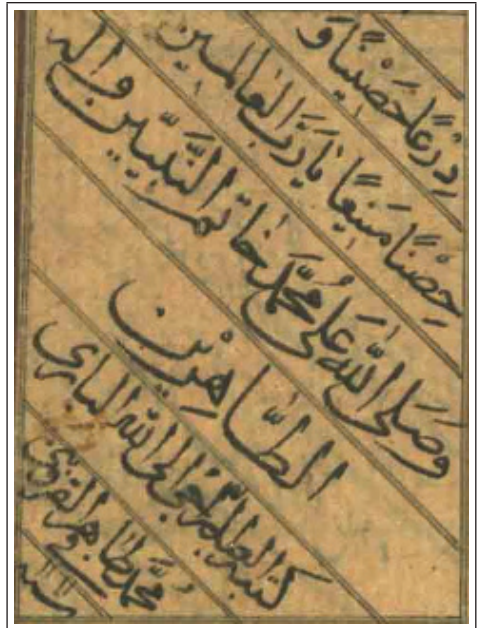 دِرْعًا حَصِيْنًا وَ
حِصْنًا مَنِيعًا يَا رَبَّ الْعَالَمِين
وَصَلَّى اللّٰه عَلَى مُحَمَّد خَاتم النَّبِيِّين وَاله
الطَّاهِرِين
كتبه الى الله الباري
محمّد طاهر القزويني
سنه